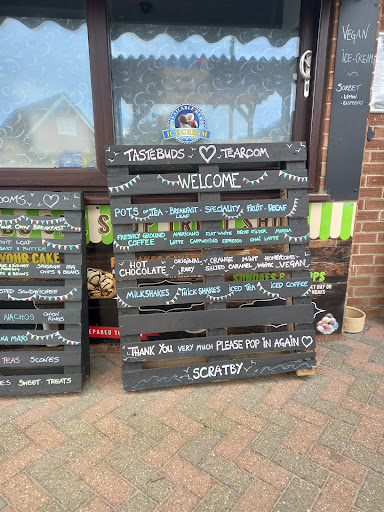 VEGAN
ICE-CREAM
SORBET
- LEMON
- RASPBERRY
ICE CREAM
TASTEBUDS TEAROOM
WELCOME
POTS OF TEA - BREAKFAST SPECIALITY FRUIT DECAF
FRESHLY GROUND COFFEE
AMERICANO FLAT WHITE DECAF FILTER MOCHA
LATTE CAPPUCCINO ESPRESSO CHAI LATTE
HOT CHOCOLATE
ORIGINAL ORANGE MINT HONEYCOMB
RUBY SALTED CARAMEL MAGIC VEGAN
MILKSHAKES THICK SHAKES ICED TEA ICED COFFEE
THANK YOU VERY MUCH PLEASE POP IN AGAIN
SCRATBY
OOMS
& BUTTER
YOUR CAKE
& BEANS
SANDWICHES
NACHOS ONION RINGS
MAYO
TEAS SCONES
SWEET TREATS
REPARED TO